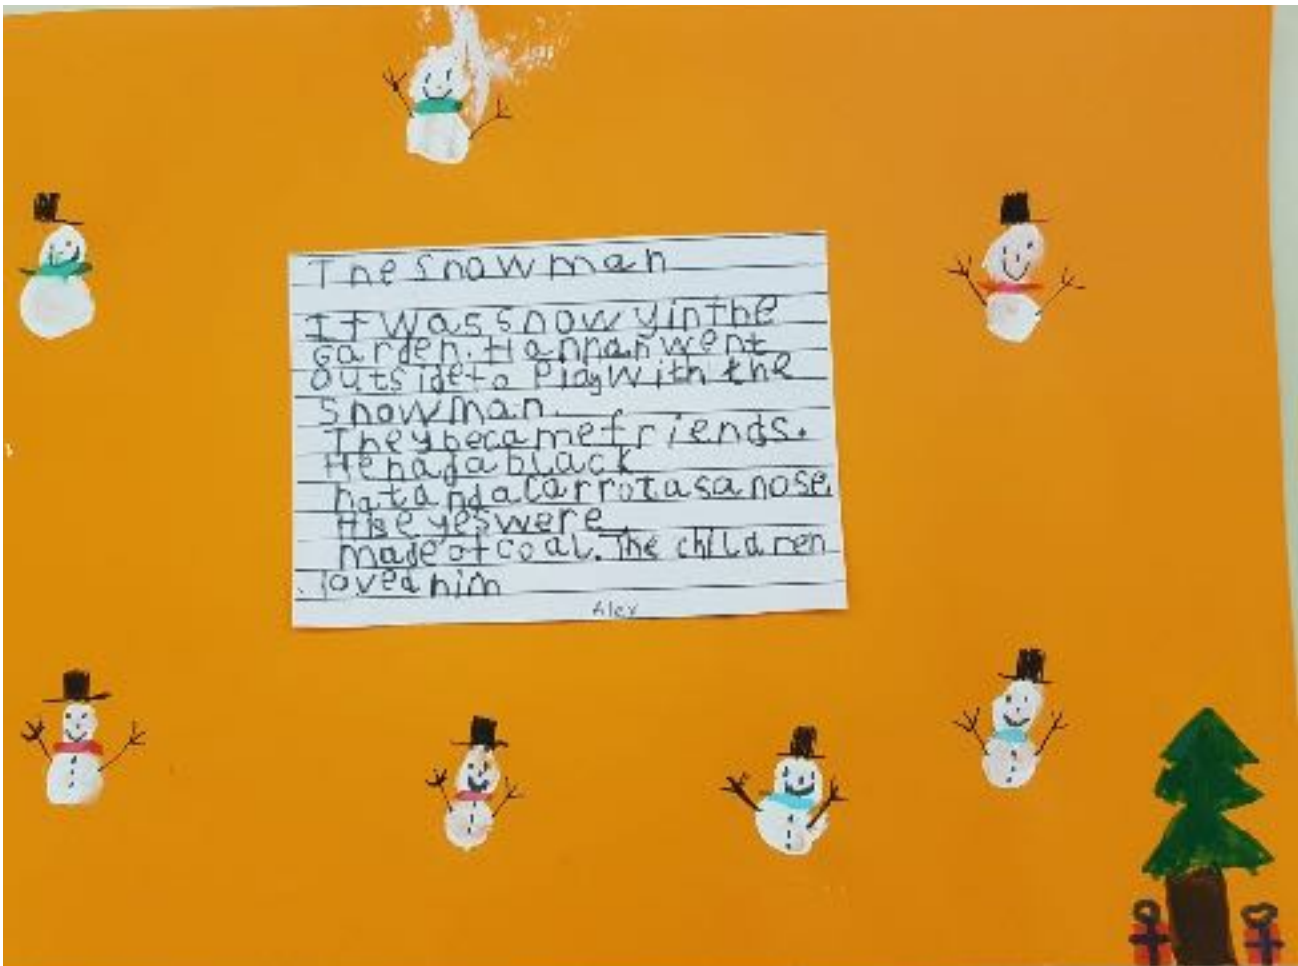 The Snowman
It was snowy in the
garden. Hannah went
outside to play with the
snowman.
They became friends.
He had a black
hat and a carrot as a nose.
His eyes were
made of coal. The children
loved him
Alex